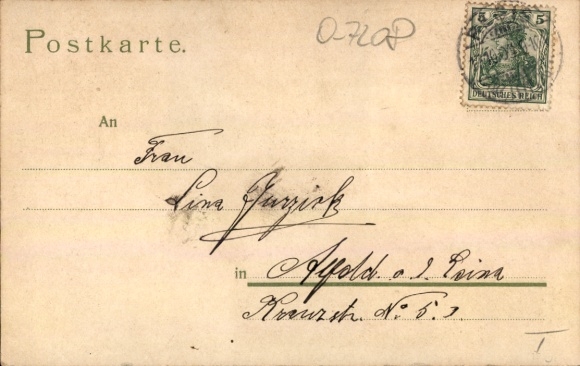 Postkarte.
O-720P
5 5
DEUTSCHES REICH
An
Frau
Lina
in Alfeld a. d. Leine
Kreuzstr. No 5.
I